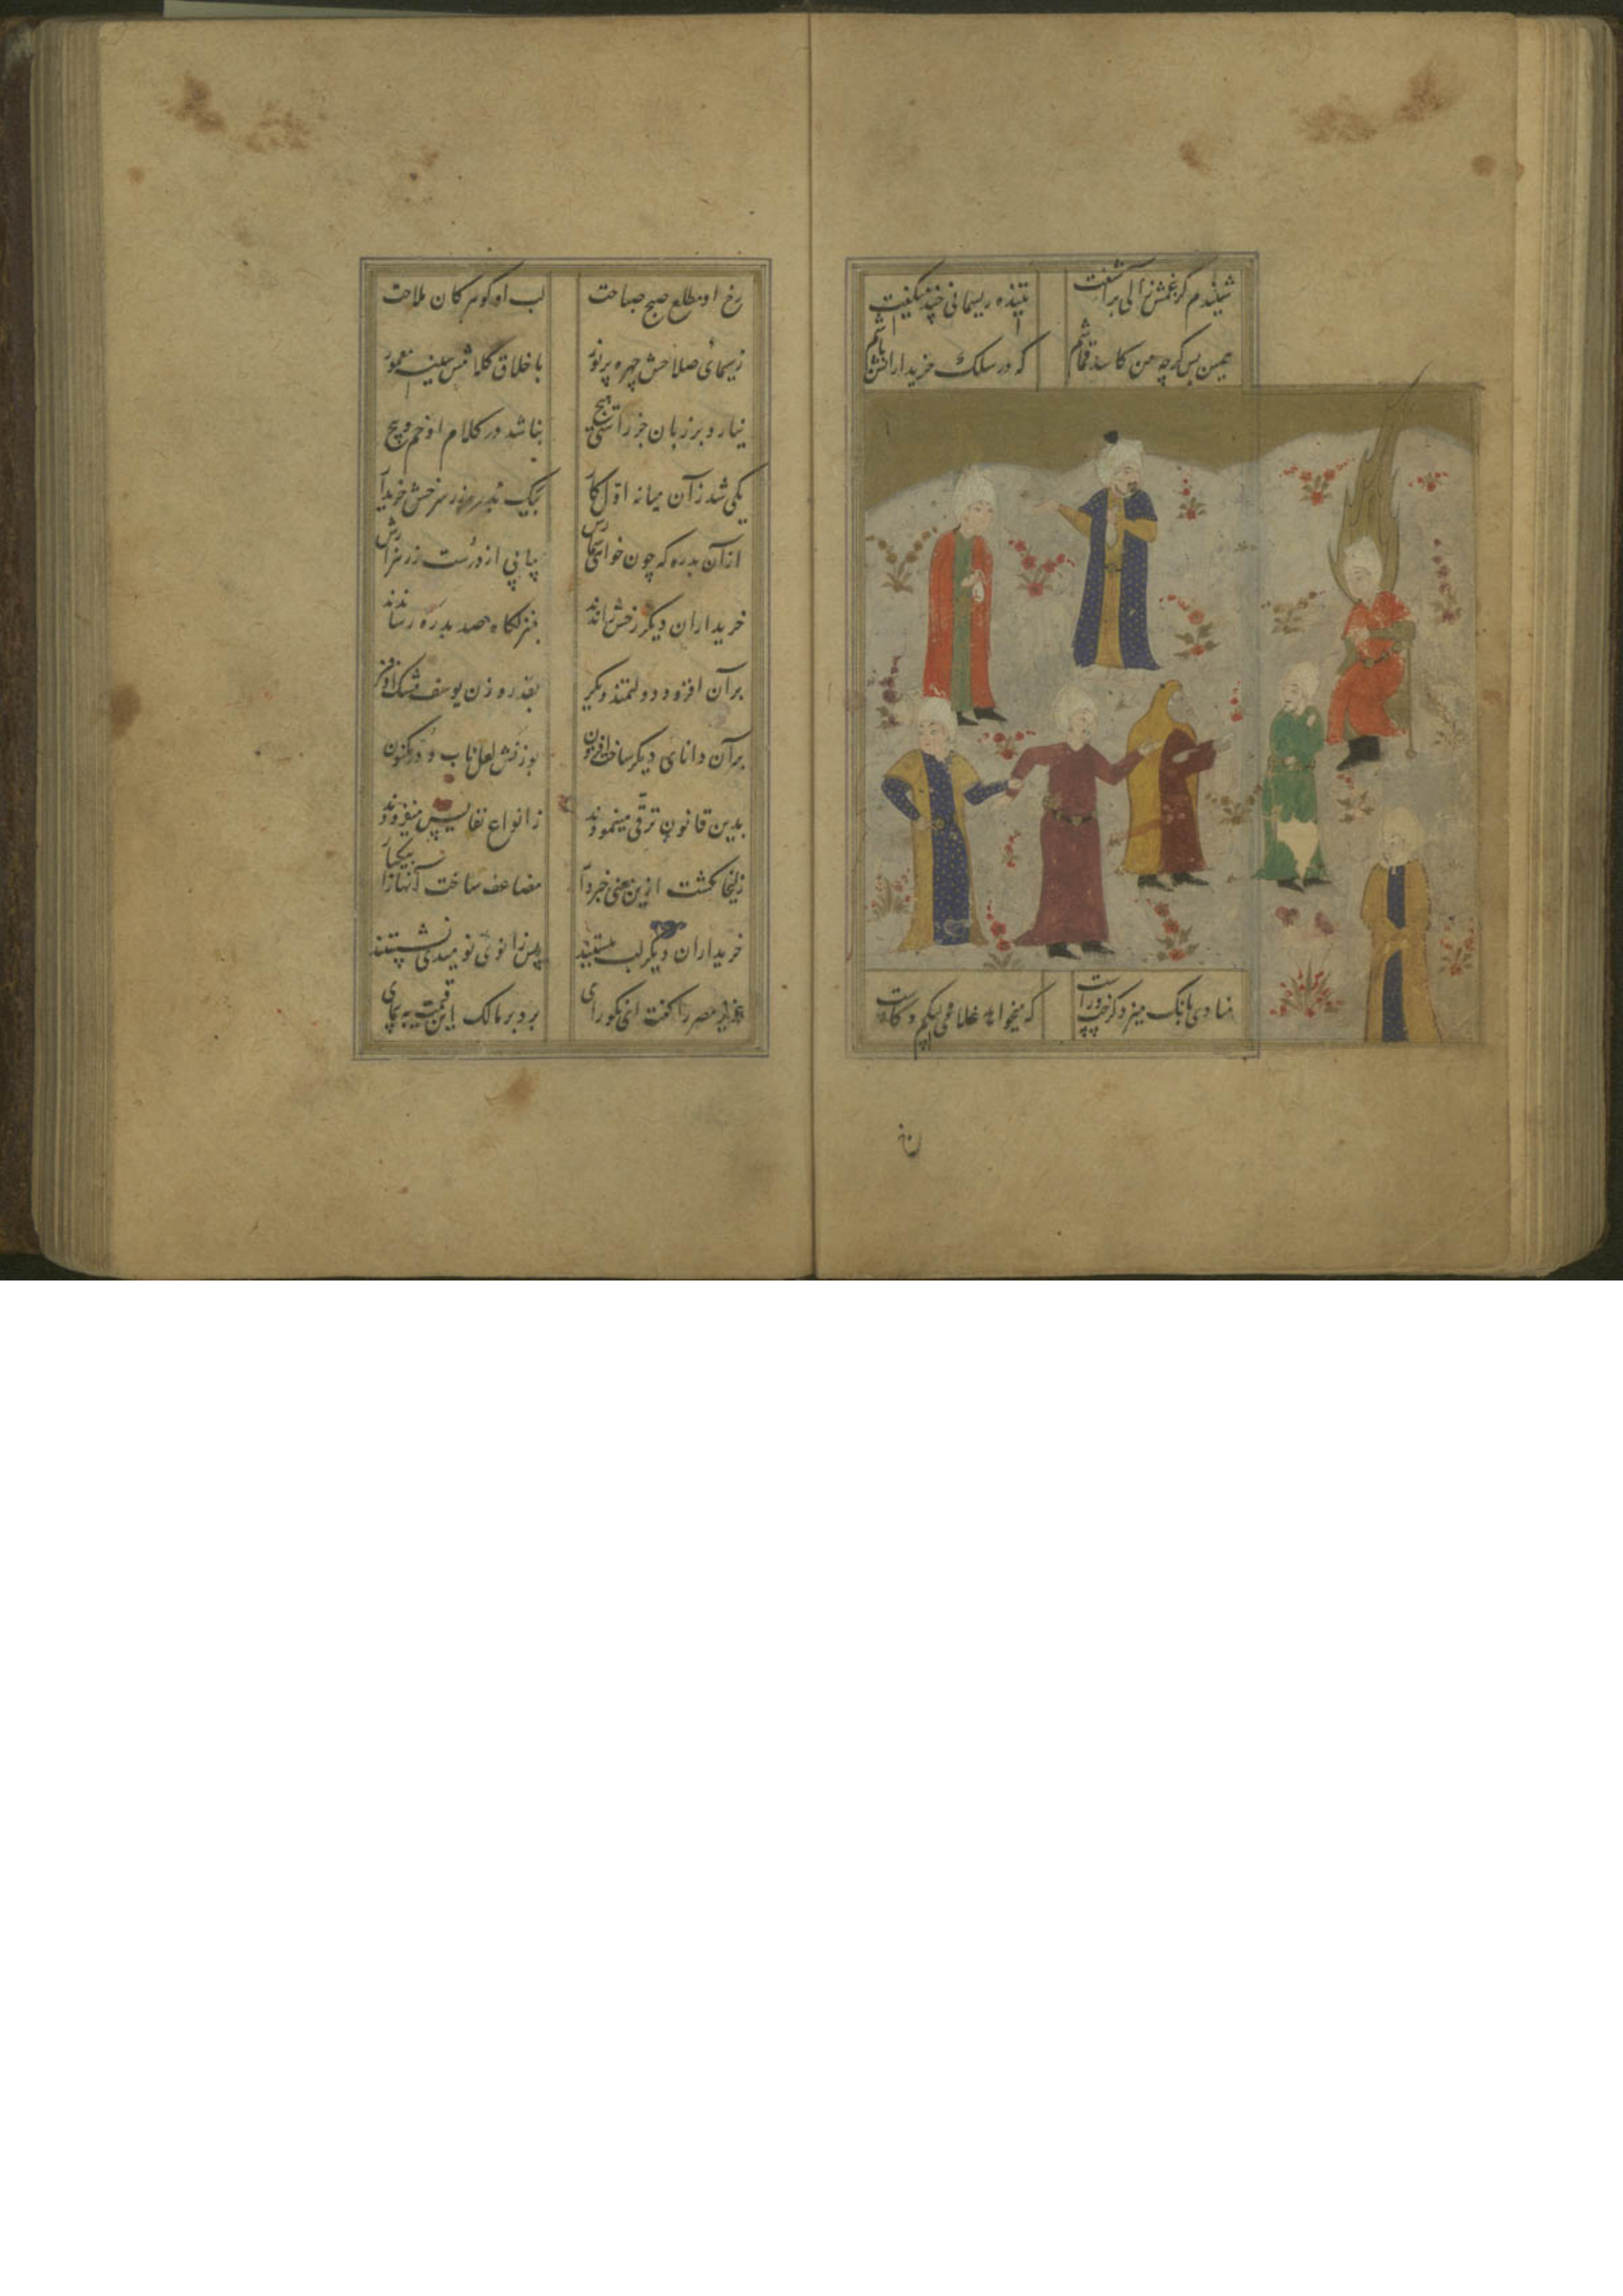 شنیدم کز غمش زالی برآشفت
تنیده ریسمانی چند میگفت
همین بس گرچه من کاسد قماشم
که در سلک خریدارانش باشم
منادی بانگ میزد کز چپ و راست
که میخواهد غلامی بی کم و کاست
رخ او مطلع صبح صباحت
لب او گوهر کان ملاحت
ز سیمای صلاحش چهره پرنور
باخلاق کرامش سینه معمور
نیارد بر زبان جز راستی هیچ
نباشد در کلام او خم و پیچ
یکی شد زان میانه اول کار
بیک بدره زر سرخش خریدار
ازان بدره که چون خواهی شمارش
بیابی از درست زر هزارش
خریداران دیگر رخش راندند
بمنزلگاه صد بدره رساندند
بران افزود دولتمند دیگر
بقدر وزن یوسف مشک اذفر
بران دانای دیگر ساخت افزون
بوزنش لعل ناب و در مکنون
بدین قانون ترقی مینمودند
ز انواع نفایس میفزودند
زلیخا گشت ازین معنی خبردار
مضاعف ساخت آنها را بیکبار
خریداران دیگر لب ببستند
پس زانوی نومیدی نشستند
عزیز مصر را گفت ای نکورای
برو بر مالک این قیمت بپیمای